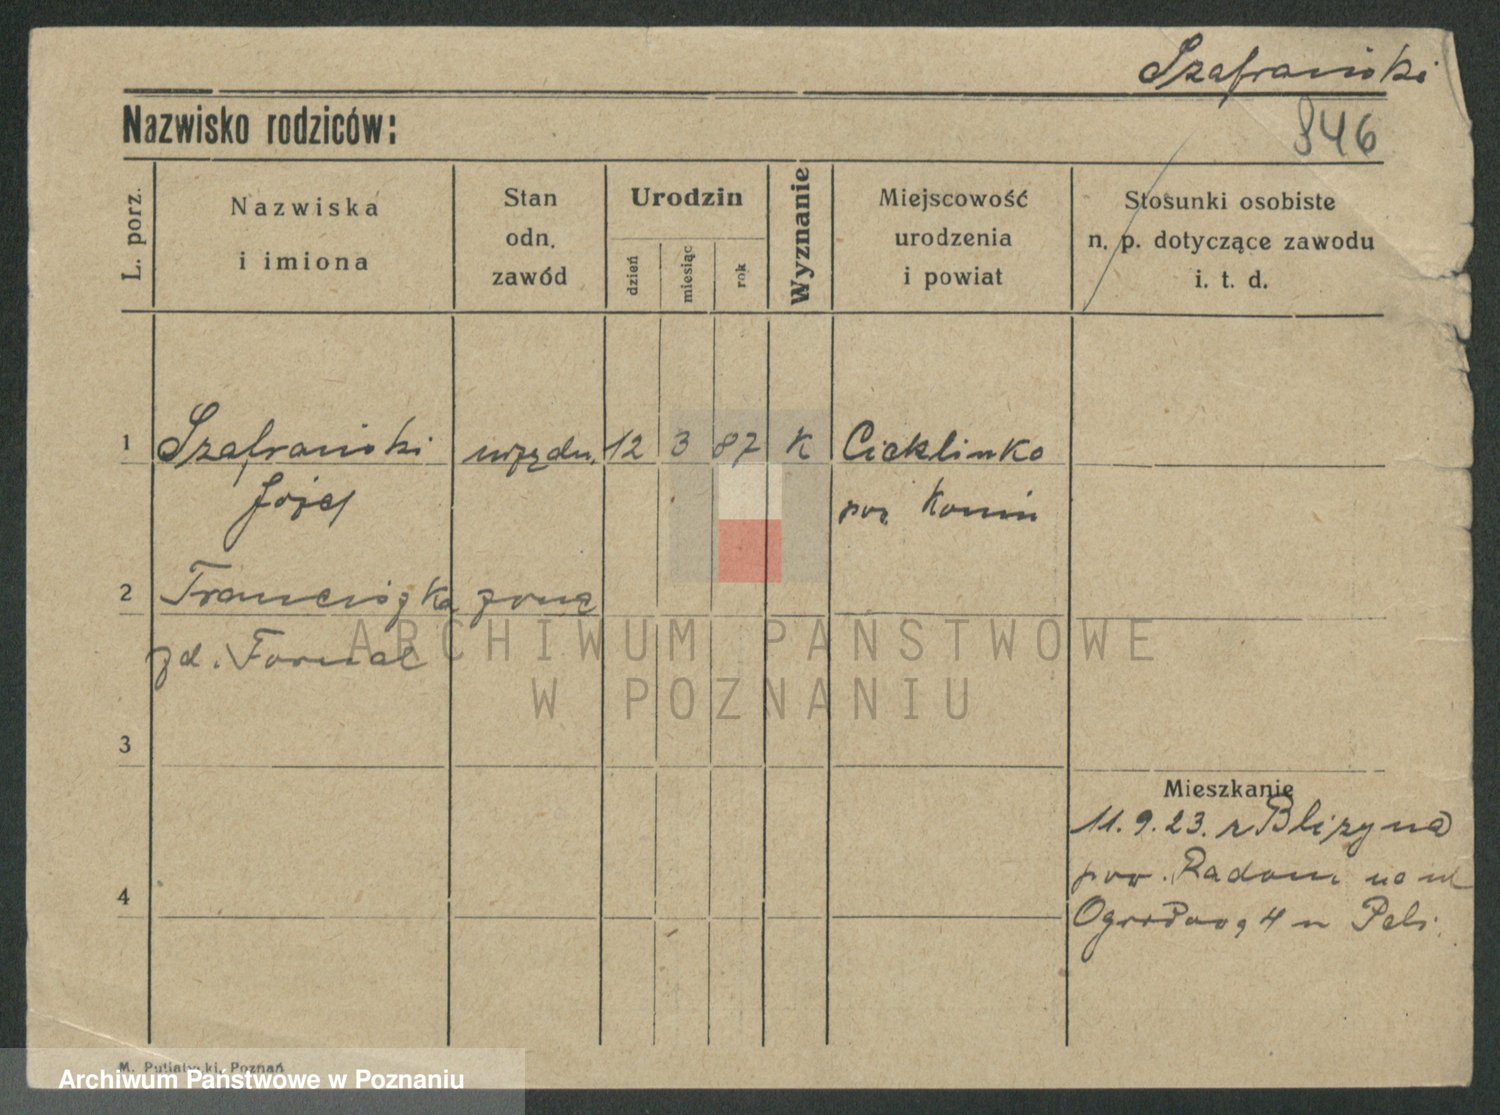 Szafrański
846
Nazwisko rodziców:
L. porz.
Nazwiska
i imiona
Stan
odn.
zawód
Urodzin
dzień
miesiąc
rok
Wyznanie
Miejscowość
urodzenia
i powiat
Stosunki osobiste
n. p. dotyczące zawodu
i. t. d.
1 Szafrański urzędn. 12 3 87 K
Józef Konin
2 Franciszka żona
zd. Fornal
ARCHIWUM PAŃSTWOWE
W POZNANIU
3
Mieszkanie
11.9.23. z Bliżyna
pow. Radom na ul
4
Ogrodową 4 u
M. Putiatycki, Poznań
Archiwum Państwowe w Poznaniu